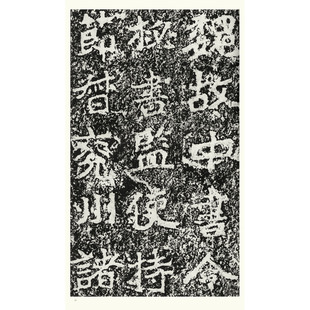 魏故中書令
秘書監使持
節督兖州諸